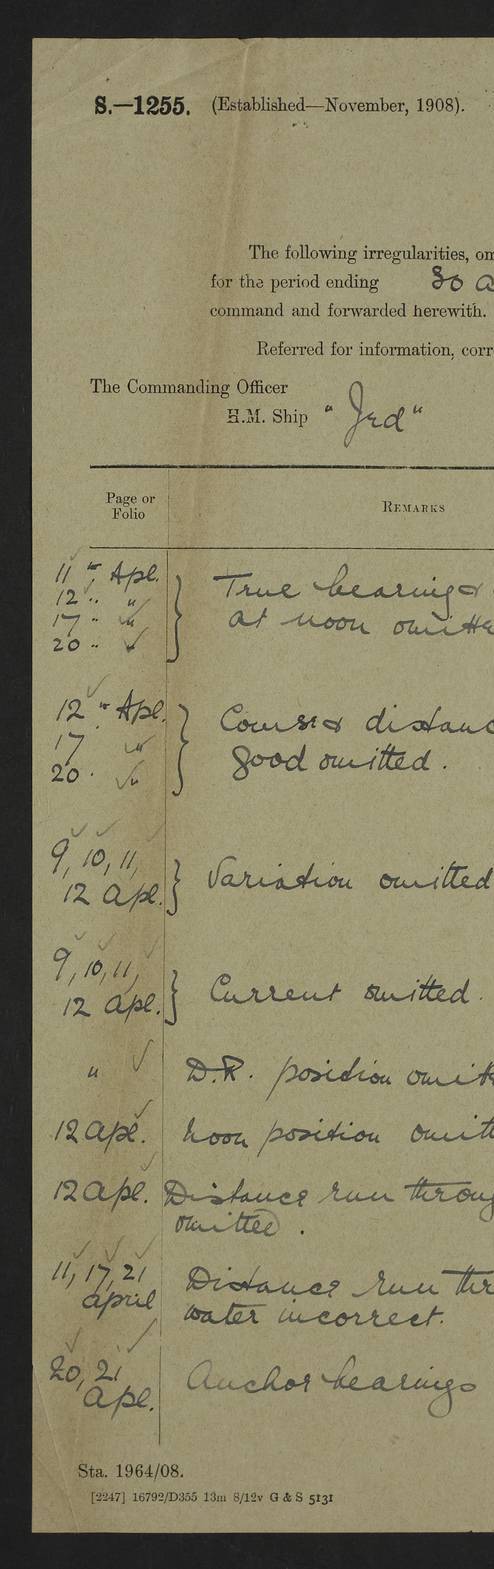 S.—1255. (Established—November, 1908).
The following irregularities, om
for the period ending 30 A
command and forwarded herewith.
Referred for information, corr
The Commanding Officer
H.M. Ship "Jed"
Page or
Folio
REMARKS
11 " Apl.
12 " " True bearing &
17 " " at noon omitte
20 " "
12 " Apl. Course & distanc
17 " good omitted.
20 "
9, 10, 11,
12 Apl. Variation omitted
9, 10, 11,
12 Apl. Current omitted.
" D.R. position omitt
12 Apl. Noon position omitt
12 Apl. Distance run throug
omitted.
11, 17, 21 Distance run thr
April water incorrect.
20, 21 Anchor bearings
Apl.
Sta. 1964/08.
[2247] 16792/D355 13m 8/12v G & S 5131